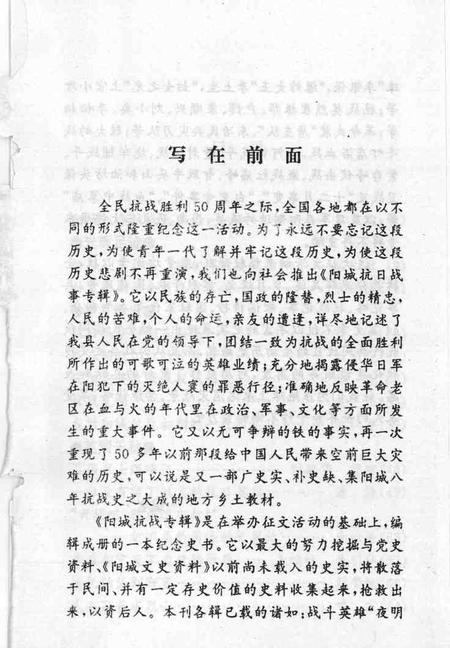 写在前面
全民抗战胜利50周年之际，全国各地都在以不
同的形式隆重纪念这一活动。为了永远不要忘记这段
历史，为使青年一代了解并牢记这段历史，为使这段
历史悲剧不再重演，我们也向社会推出《阳城抗日战
事专辑》。它以民族的存亡，国政的隆替，烈士的精忠，
人民的苦难，个人的命运，亲友的遭逢，详尽地记述了
我县人民在党的领导下，团结一致为抗战的全面胜利
所作出的可歌可泣的英雄业绩；充分地揭露侵华日军
在阳犯下的灭绝人寰的罪恶行径；准确地反映革命老
区在血与火的年代里在政治、军事、文化等方面所发
生的重大事件。它又以无可争辩的铁的事实，再一次
重现了50多年以前那段给中国人民带来空前巨大灾
难的历史，可以说是又一部广史实、补史缺、集阳城八
年抗战史之大成的地方乡土教材。
《阳城抗战专辑》是在举办征文活动的基础上，编
辑成册的一本纪念史书。它以最大的努力挖掘与党史
资料、《阳城文史资料》以前尚未载入的史实，将散落
于民间、并有一定存史价值的史料收集起来，抢救出
来，以资后人。本刊各辑已载的诸如：战斗英雄“夜明